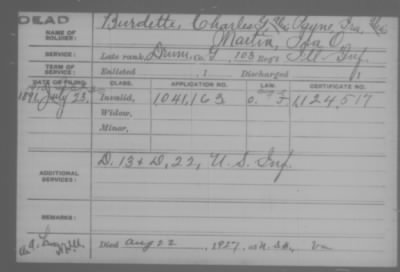 DEAD
NAME OF SOLDIER: Burdette, Charles G. Payne, Ira,
Martin, Ira O.
SERVICE: Late rank, Drum, Co. , 103 Reg't Ill. Inf.
TERM OF SERVICE: Enlisted , 1 Discharged , 1
DATE OF FILING. CLASS. APPLICATION NO. LAW. CERTIFICATE NO.
1891 July 23, Invalid, 1041,163 1,124,517
Widow,
Minor,
ADDITIONAL SERVICES: D. 13 & D, 22, U. S. Inf.
REMARKS:
Died Aug 22, 1927, at Va